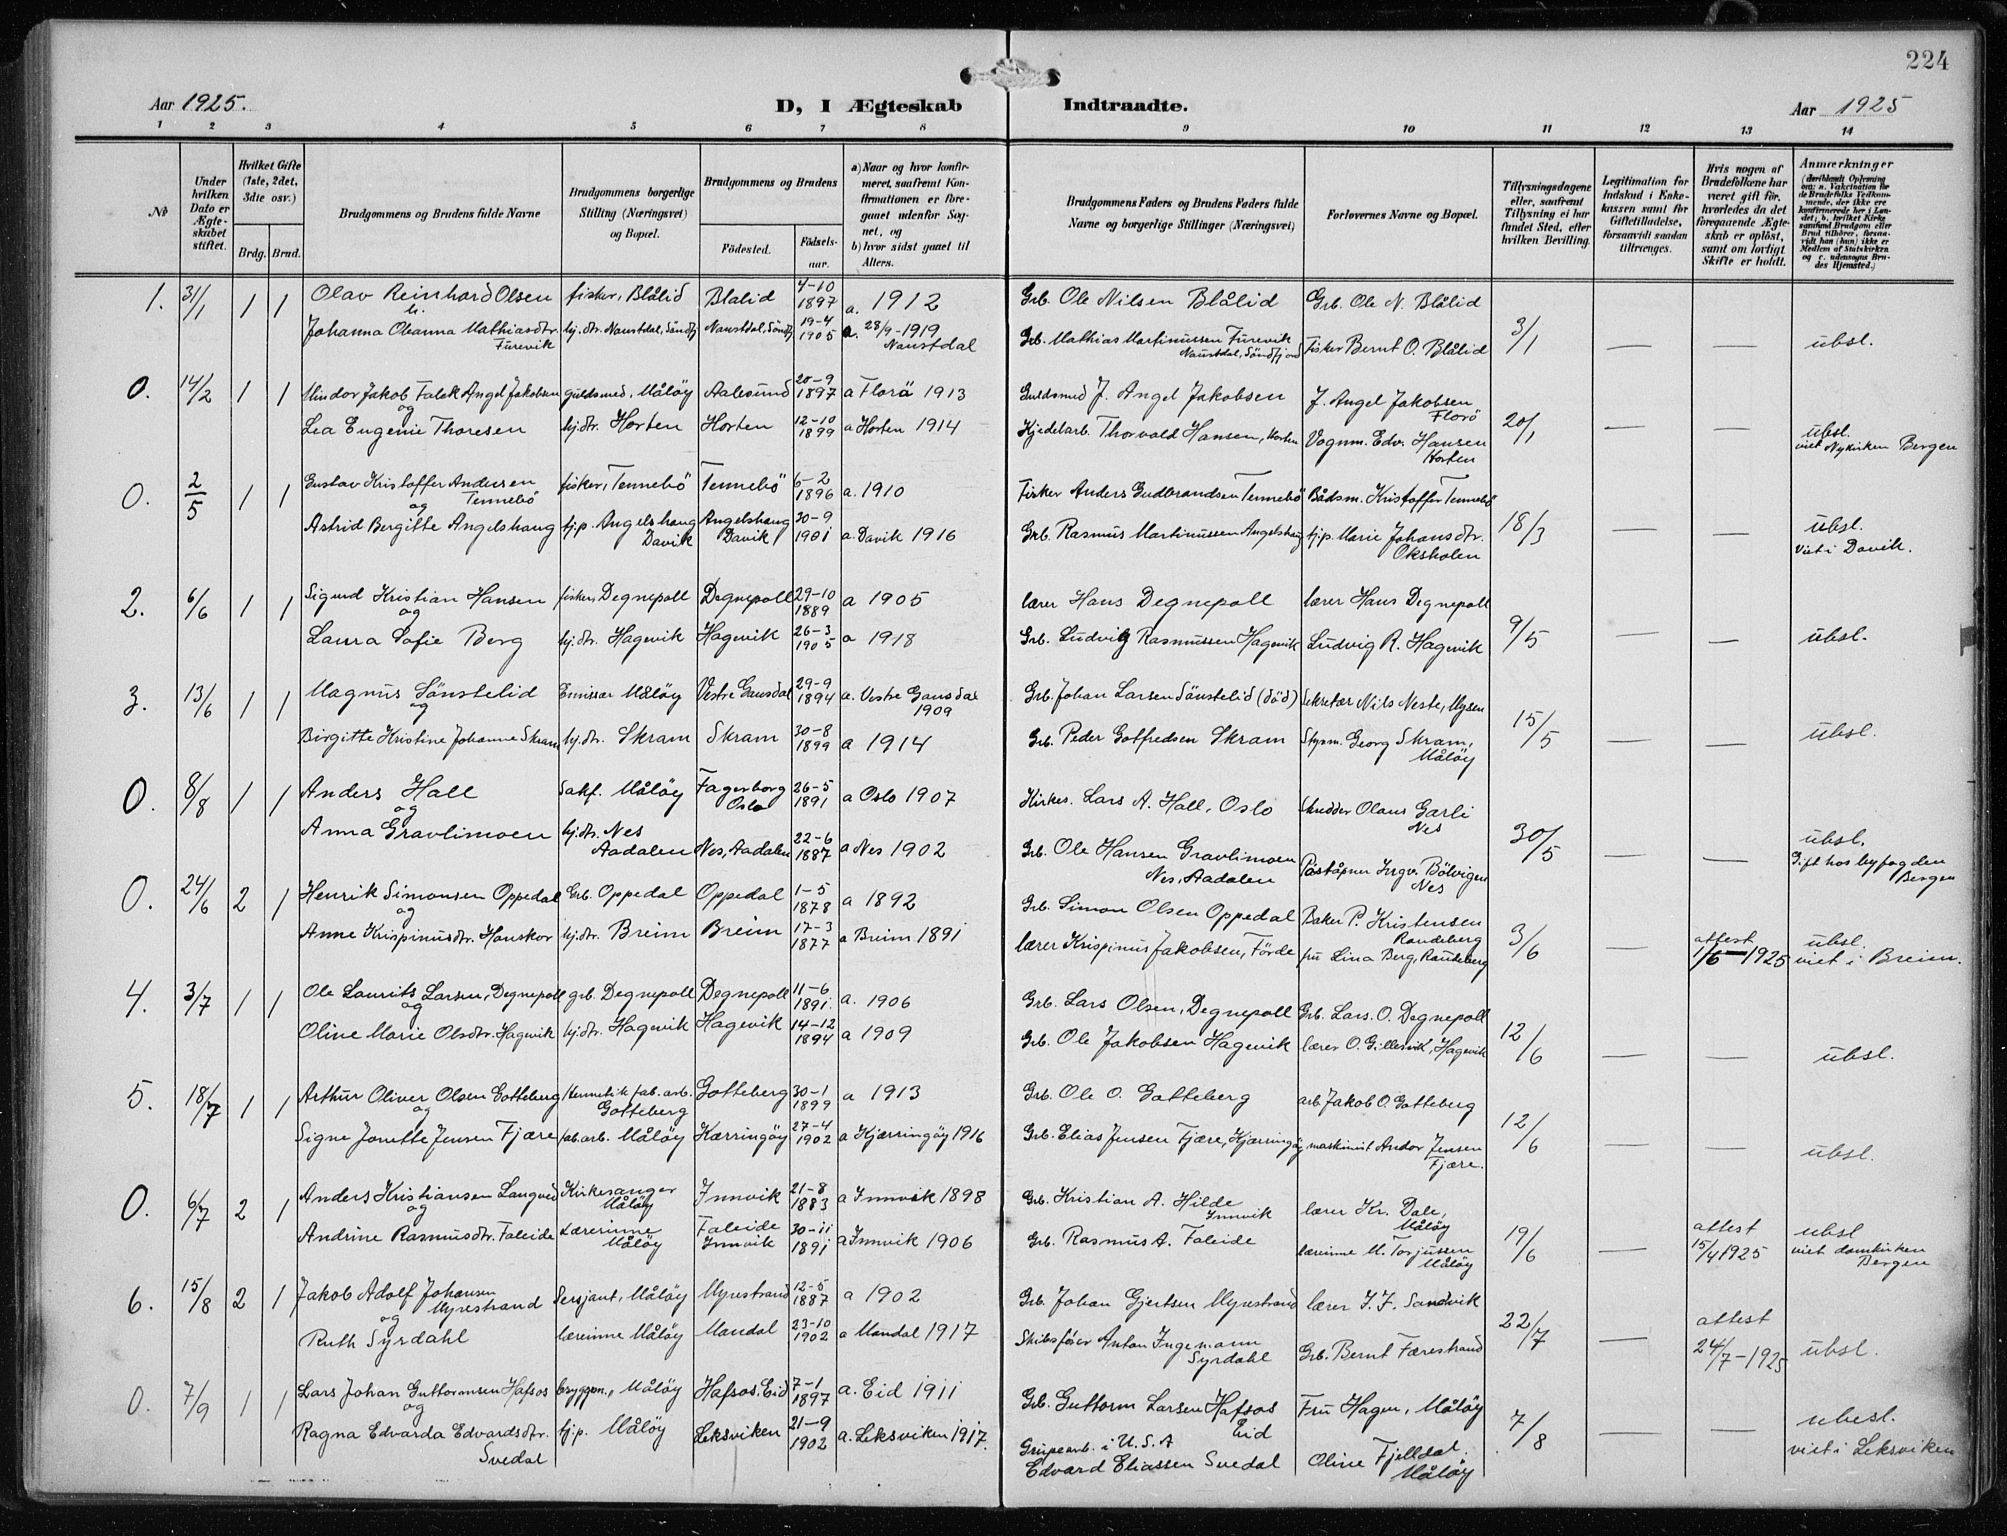 224
Aar 1925. D, I Ægteskab Indtraadte. Aar 1925
1 2 3 4 5 6 7 8 9 10 11 12 13 14
No
Under hvilken Dato er Ægteskabet stiftet.
Hvilket Gifte (1ste, 2det, 3die osv.)
Brdg. Brud.
Brudgommens og Brudens fulde Navne
Brudgommens borgerlige Stilling (Næringsvei) og Bopæl.
Brudgommens og Brudens
Fødested. Fødselsaar.
a) Naar og hvor konfirmeret, saafremt Konfirmationen er foregaaet udenfor Sognet, og
b) hvor sidst gaaet til Alters.
Brudgommens Faders og Brudens Faders fulde Navne og borgerlige Stillinger (Næringsvei)
Forlovernes Navne og Bopæl.
Tillysningsdagene eller, saafremt Tillysning ei har fundet Sted, efter hvilken Bevilling.
Legitimation for Indskud i Enkekassen samt for Giftetilladelse, forsaavidt saadan tiltrænges.
Hvis nogen af Brudefolkene har været gift før, hvorledes da det foregaaende Ægteskab er opløst, samt om lovligt Skifte er holdt.
Anmærkninger
(deriblandt Oplysning om: a. Vakcination for de Brudefolks Vedkommende, der ikke ere konfirmerede her i Landet; b. hvilket Kirkesamfund Brudgom eller Brud tilhører, forsaavidt han (hun) ikke er Medlem af Statskirken og c. udensogns Brudes Hjemsted.)
1. 31/1 1 1 Olav Reinhard Olsen fisker, Blålid Blalid 4-10 1897 a. 1912 Grb. Ole Nilsen Blålid Grb. Ole N. Blålid
Johanna Oleanna Mathiasdtr. Furevik hj.dtr. Naustdal, Söndfj Naustdal, Söndfj 19-4 1905 a. 28/9-1919 Naustdal Grb. Mathias Martinussen Furevik Naustdal, Söndfjord Fisker Bernt O. Blålid 3/1 — — ubsl.
0. 14/2 1 1 Mindor Jakob Falck Angel Jakobsen guldsmed, Måløy Aalesund 20-9 1897 a Florø 1913 Guldsmed J. Angel Jakobsen J. Angel Jakobsen Florö
og
Lea Eugenie Thoresen hj.dtr. Horten Horten 12-10 1899 a Horten 1914 Kjedelarb. Thorvald Hansen, Horten Vognm. Edv. Hansen Horten 20/1 — — ubsl. viet Nykirken Bergen
0. 2/5 1 1 Gustav Kristoffer Andersen Tennebö fisker, Tennebö Tennebö 6-2 1896 a. 1910 Fisker Anders Gudbrandsen Tennebö Bådsm. Kristoffer Tennebö
og
Astrid Bergitte Angelshaug hj.p. Angelshaug Davik Angelshaug Davik 30-9 1901 a. Davik 1916 Grb. Rasmus Martinussen Angelshaug hj.p. Marie Johansdtr. Oksholen 18/3 — — ubsl. Viet i Davik.
2. 6/6 1 1 Sigurd Kristian Hansen fisker, Degnepoll Degnepoll 29-10 1889 a 1905 lærer Hans Degnepoll lærer Hans Degnepoll
og
Laura Sofie Berg hj.dtr. Hagevik Hagevik 26-3 1905 a 1918 Grb. Ludvig Rasmussen Hagevik Ludvig R. Hagevik 9/5 — — ubsl.
3. 13/6 1 1 Magnus Sönstelid Emissær Måløy Vestre Gausdal 29-9 1894 a. Vestre Gausdal 1909 Grb. Johan Larsen Sönstelid (död) Sekretær Nils Neste, Mysen
og
Birgitte Kristine Johanne Skram hj.dtr. Skram Skram 30-8 1899 a 1914 Grb. Peder Gotfredsen Skram Stysm. Georg Skram, Måløy 15/5 — — ubsl.
0. 8/8 1 1 Anders Hall Sakf. Måløy Fagerborg Oslo 26-5 1891 a Oslo 1907 Kirkes. Lars A. Hall, Oslo Skredder Olaus Garli Nes
og
Anna Gravlimoen hj.dtr. Nes Aadalen Nes, Aadalen 22-6 1887 a Nes 1902 Grb. Ole Hansen Gravlimoen Nes, Aadalen Poståpner Ingv. Bölvigen Nes 30/5 — — ubsl. Gift hos byfogden Bergen
0. 24/6 2 1 Henrik Simonsen Oppedal Grb. Oppedal Oppedal 1-5 1878 a 1892 Grb. Simon Olsen Oppedal Baker P. Kristensen Raudeberg
og
Anne Krispinusdtr. Hauskor hj.dtr. Breim Breim 17-3 1877 a Breim 1891 lærer Krispinus Jakobsen, Förde fru Lina Berg, Raudeberg 3/6 — attest 1/6-1925 ubsl. viet i Breim.
4. 3/7 1 1 Ole Laurits Larsen, Degnepoll grb. Degnepoll Degnepoll 11-6 1891 a. 1906 Grb. Lars Olsen, Degnepoll Grb. Lars. O. Degnepoll
og
Oline Marie Olsdtr. Hagevik hj.dtr. Hagevik Hagevik 14-12 1894 a 1909 Grb. Ole Jakobsen Hagevik lærer O. Gillesvik, Hagevik 12/6 — — ubsl.
5. 18/7 1 1 Arthur Oliver Olsen Gotteberg Hermetikfab.arb. Gotteberg Gotteberg 30-1 1899 a 1913 Grb. Ole O. Gotteberg arb Jakob O. Gotteberg
og
Signe Jonette Jensen Fjære fab.arb. Måløy Kærringöy 27-4 1902 a Kjærringöy 1916 Grb. Elias Jensen Fjære, Kjærringöy maskinist Andor Jensen Fjære. 12/6 — — ubsl.
0. 6/7 2 1 Anders Kristiansen Langved Kirkesanger Måløy Innvik 21-8 1883 a Innvik 1898 Grb. Kristian A. Hilde Innvik lærer Kr. Dale, Måløy
og
Andrine Rasmusdtr. Faleide Lærerinne Måløy Faleide Innvik 30-11 1891 a Innvik 1906 Grb. Rasmus A. Faleide lærerinne M. Torjussen Måløy 19/6 attest 15/4 1925 ubsl viet domkirken Bergen
6. 15/8 2 1 Jakob Adolf Johansen Myrestrand Sersjant, Måløy Myrestrand 12-5 1887 a 1902 Grb. Johan Gjertsen Myrestrand lærer J. J. Sandvik
og
Ruth Syrdahl lærerinne Måløy Mandal 23-10 1902 a Mandal 1917 Skibsfører Anton Ingemann Syrdahl Grb. Bernt Færestrand 22/7 — attest 24/7-1925 ubsl.
0. 7/9 1 1 Lars Johan Guttormsen Hafsos bryggem., Måløy Hafsos, Eid 7-1 1897 a. Eid 1911 Grb. Guttorm Larsen Hafsos Eid Fru Hagen, Måløy
og
Ragna Edvarda Edvardsdtr. Svedal hj.p. Måløy Leksviken 21-9 1902 a. Leksviken 1917. Grupearb. i U.S.A Edvard Eliassen Svedal Oline Fjelldal. Måløy 7/8 — — ubesl. viet i Leksviken